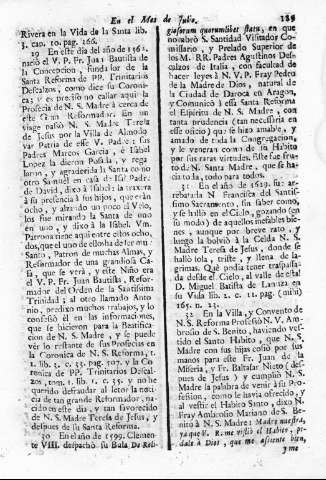 En el Mes de Julio.
189
Rivera en la Vida de la Santa lib.
3. cap. 10. pag. 266.
29 En este dia del año de 1561.
nació el V. P. Fr. Juan Bautista de
la Concepcion, Fundador de la
Santa Reforma de PP. Trinitarios
Descalzos, como dice su Coroni-
ca; y es preciso no callar aqui la
Profecía de N. S. Madre à cerca de
este Gran Reformador. En un
viage nuestra N. S. Madre Teresa
de Jesus por la Villa de Almodo
var Patria de este V. Padre: sus
Padres Marcos Garcia, è Isabel
Lopez la dieron Posada, y rega
laron, y agradecida la Santa como
otro Samuel en casa de Isaì Padre
de David, dixo à Isabèl: la traxera
à su presencia à sus hijos, que eran
ocho, y alzando un poco el Velo,
los fue mirando la Santa de uno
en uno, y dixo à Isabèl. Vm.
Patrona tiene aqui entre ellos ocho,
dos, que el uno de ellos ha de ser mui
Santo, Patron de muchas Almas, y
Reformador de una grandiosa Ca-
sa, que se verá, y este Niño era
el V. P. Fr. Juan Bautista, Refor-
mador del Orden de la Santisima
Trinidad; al otro llamado Anto
nio, predixo muchos trabajos, y lo
confesó èl en las informaciones,
que se hicieron para la Beatifica-
cion de N. S. Madre, y se puede
vèr lo restante de sus Profecias en
la Coronica de N. S. Reforma, t.
1. lib. 2. c. 35. pag. 307. y la Co
ronica de PP. Trinitarios Descal-
zos, tom. 1. lib. 1. c. 35. y no he
querido defraudar al letor la noti-
cia de tan grande Reformador, na
cido en este dia, y tan favorecido
de N. S. Madre Teresa de Jesus, y
despues de su Santa Reforma.
30 En el año de 1599. Clemen-
te VIII. despachó su Bula De Reli-
giosorum quorumlibet statu, en que
nombró S. Santidad Visitador Co-
misario, y Prelado Superior de
los M. RR. Padres Agustinos Des-
calzos de Italia, con facultad de
hacer leyes à N. V. P. Fray Pedro
de la Madre de Dios, natural de
la Ciudad de Daroca en Aragon,
y Comunicó à esta Santa Reforma
el Espiritu de N. S. Madre, con
tanta prudencia (tan necesaria en
ese oficio) que se hizo amable, y
amado de toda la Congregacion,
y le veneran como de su Habito
por sus raras virtudes. Este fue fru-
to de N. Santa Madre, que se ha-
cia toda, todo para todos.
31 En el año de 1659. fue ar-
rebatada N. Francisca del Santisi-
mo Sacramento, sin saber como,
y se halló en el Cielo, gozando (en
su modo) de aquellos inefables bie-
nes, aunque por breve rato, y
luego la bolvió à la Celda N. S.
Madre Teresa de Jesus, donde se
halló sola, triste, y llena de la-
grimas. Què podia tener trasplan-
tada desde el Cielo, al valle de esta!
D. Miguel Batista de Lanuza en
su Vida lib. 2. c. 11. pag. (mihi)
165. n. 21.
32 En la Villa, y Convento de
N. S. Reforma Profesó N. V. Am-
brosio de S. Benito, haviendo ves-
tido el Santo Habito, que N. S.
Madre con sus hijas cosió por sus
manos para este Fr. Juan de la
Miseria, y Fr. Baltasar Nieto (des-
pues de Jesus) y cumplió N. S.
Madre la palabra de venir à su Pro-
fession, como le havia ofrecido, y
al vestir el Habito Santo, dixo N.
Fray Ambrosio Mariano de S. Be-
nito à N. S. Madre: Madre nuestra,
ya que V. R. me vistió el Habito, pi-
dale à Dios, que me asiente bien,
y me